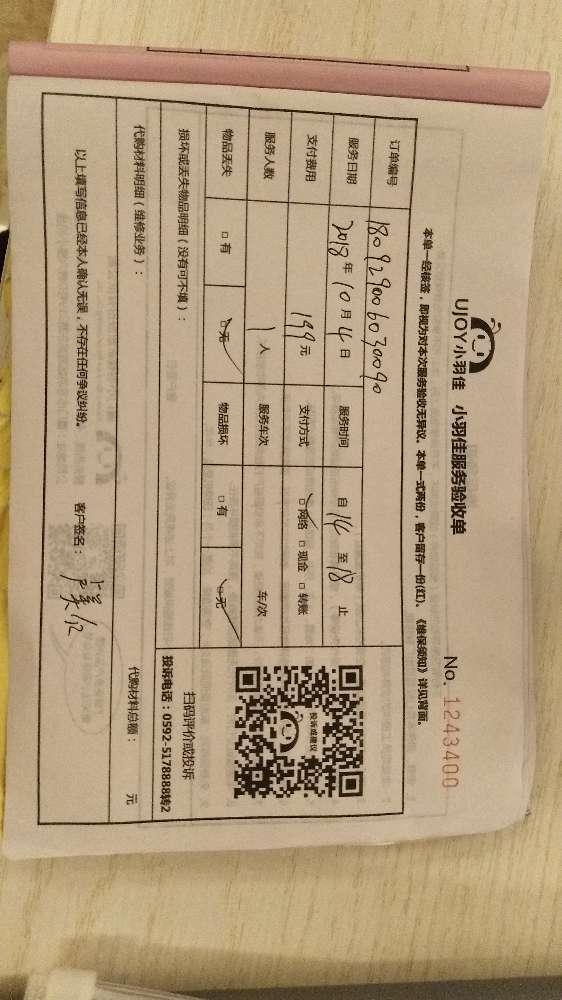 UJOY小羽佳 小羽佳服务验收单
No. 1243400
本单一经核签,即视为对本次服务验收无异议。本单一式两份,客户留存一份(红)。《维保须知》详见背面。
订单编号 180929006030090
服务日期 2018年10月4日 服务时间 自14至18止
支付费用 199元 支付方式 □网络 □现金 □转账
服务人数 1人 服务车次 车/次
物品丢失 □有 □无 物品损坏 □有 □无
投诉或建议
扫码评价或投诉
投诉电话:0592-5178888转2
损坏或丢失物品明细(没有可不填):
代购材料明细(维修业务): 代购材料总额: 元
以上填写信息已经本人确认无误,不存在任何争议纠纷。 客户签名: